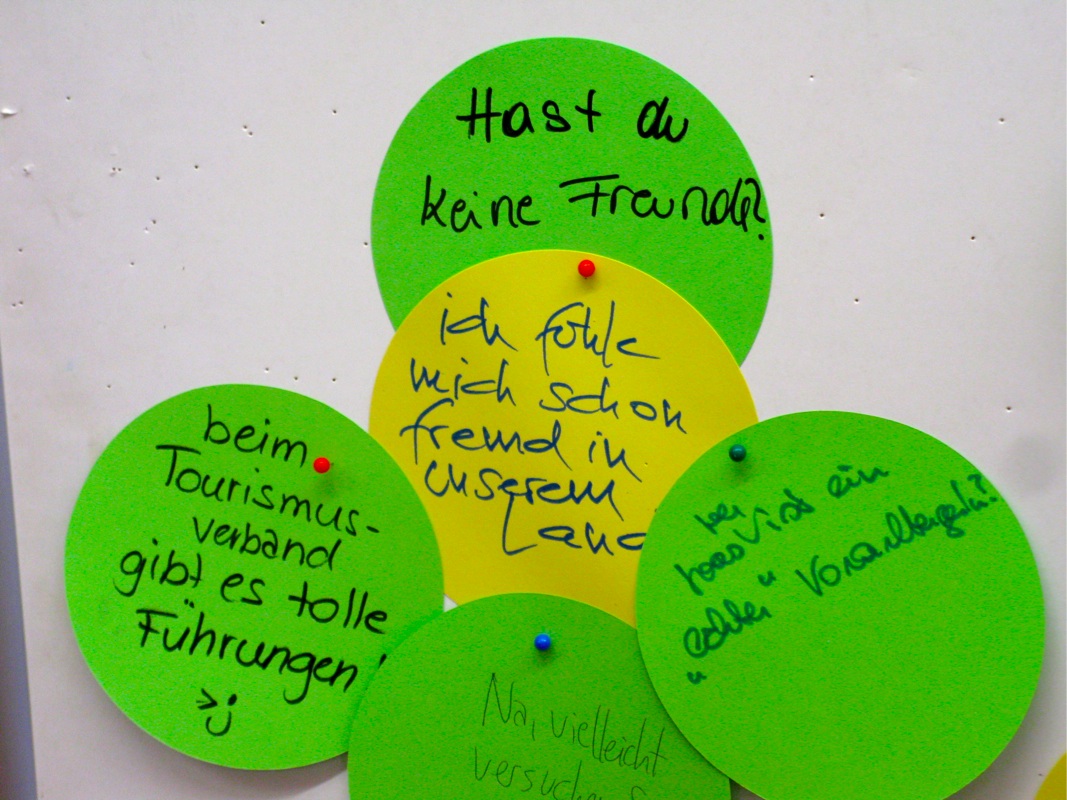 Hast du
keine Freunde?
ich fühle
mich schon
fremd in
unserem
Land
beim
Tourismus-
verband
gibt es tolle
Führungen!
ein
"echter" Vorarlberger
Na, vielleicht